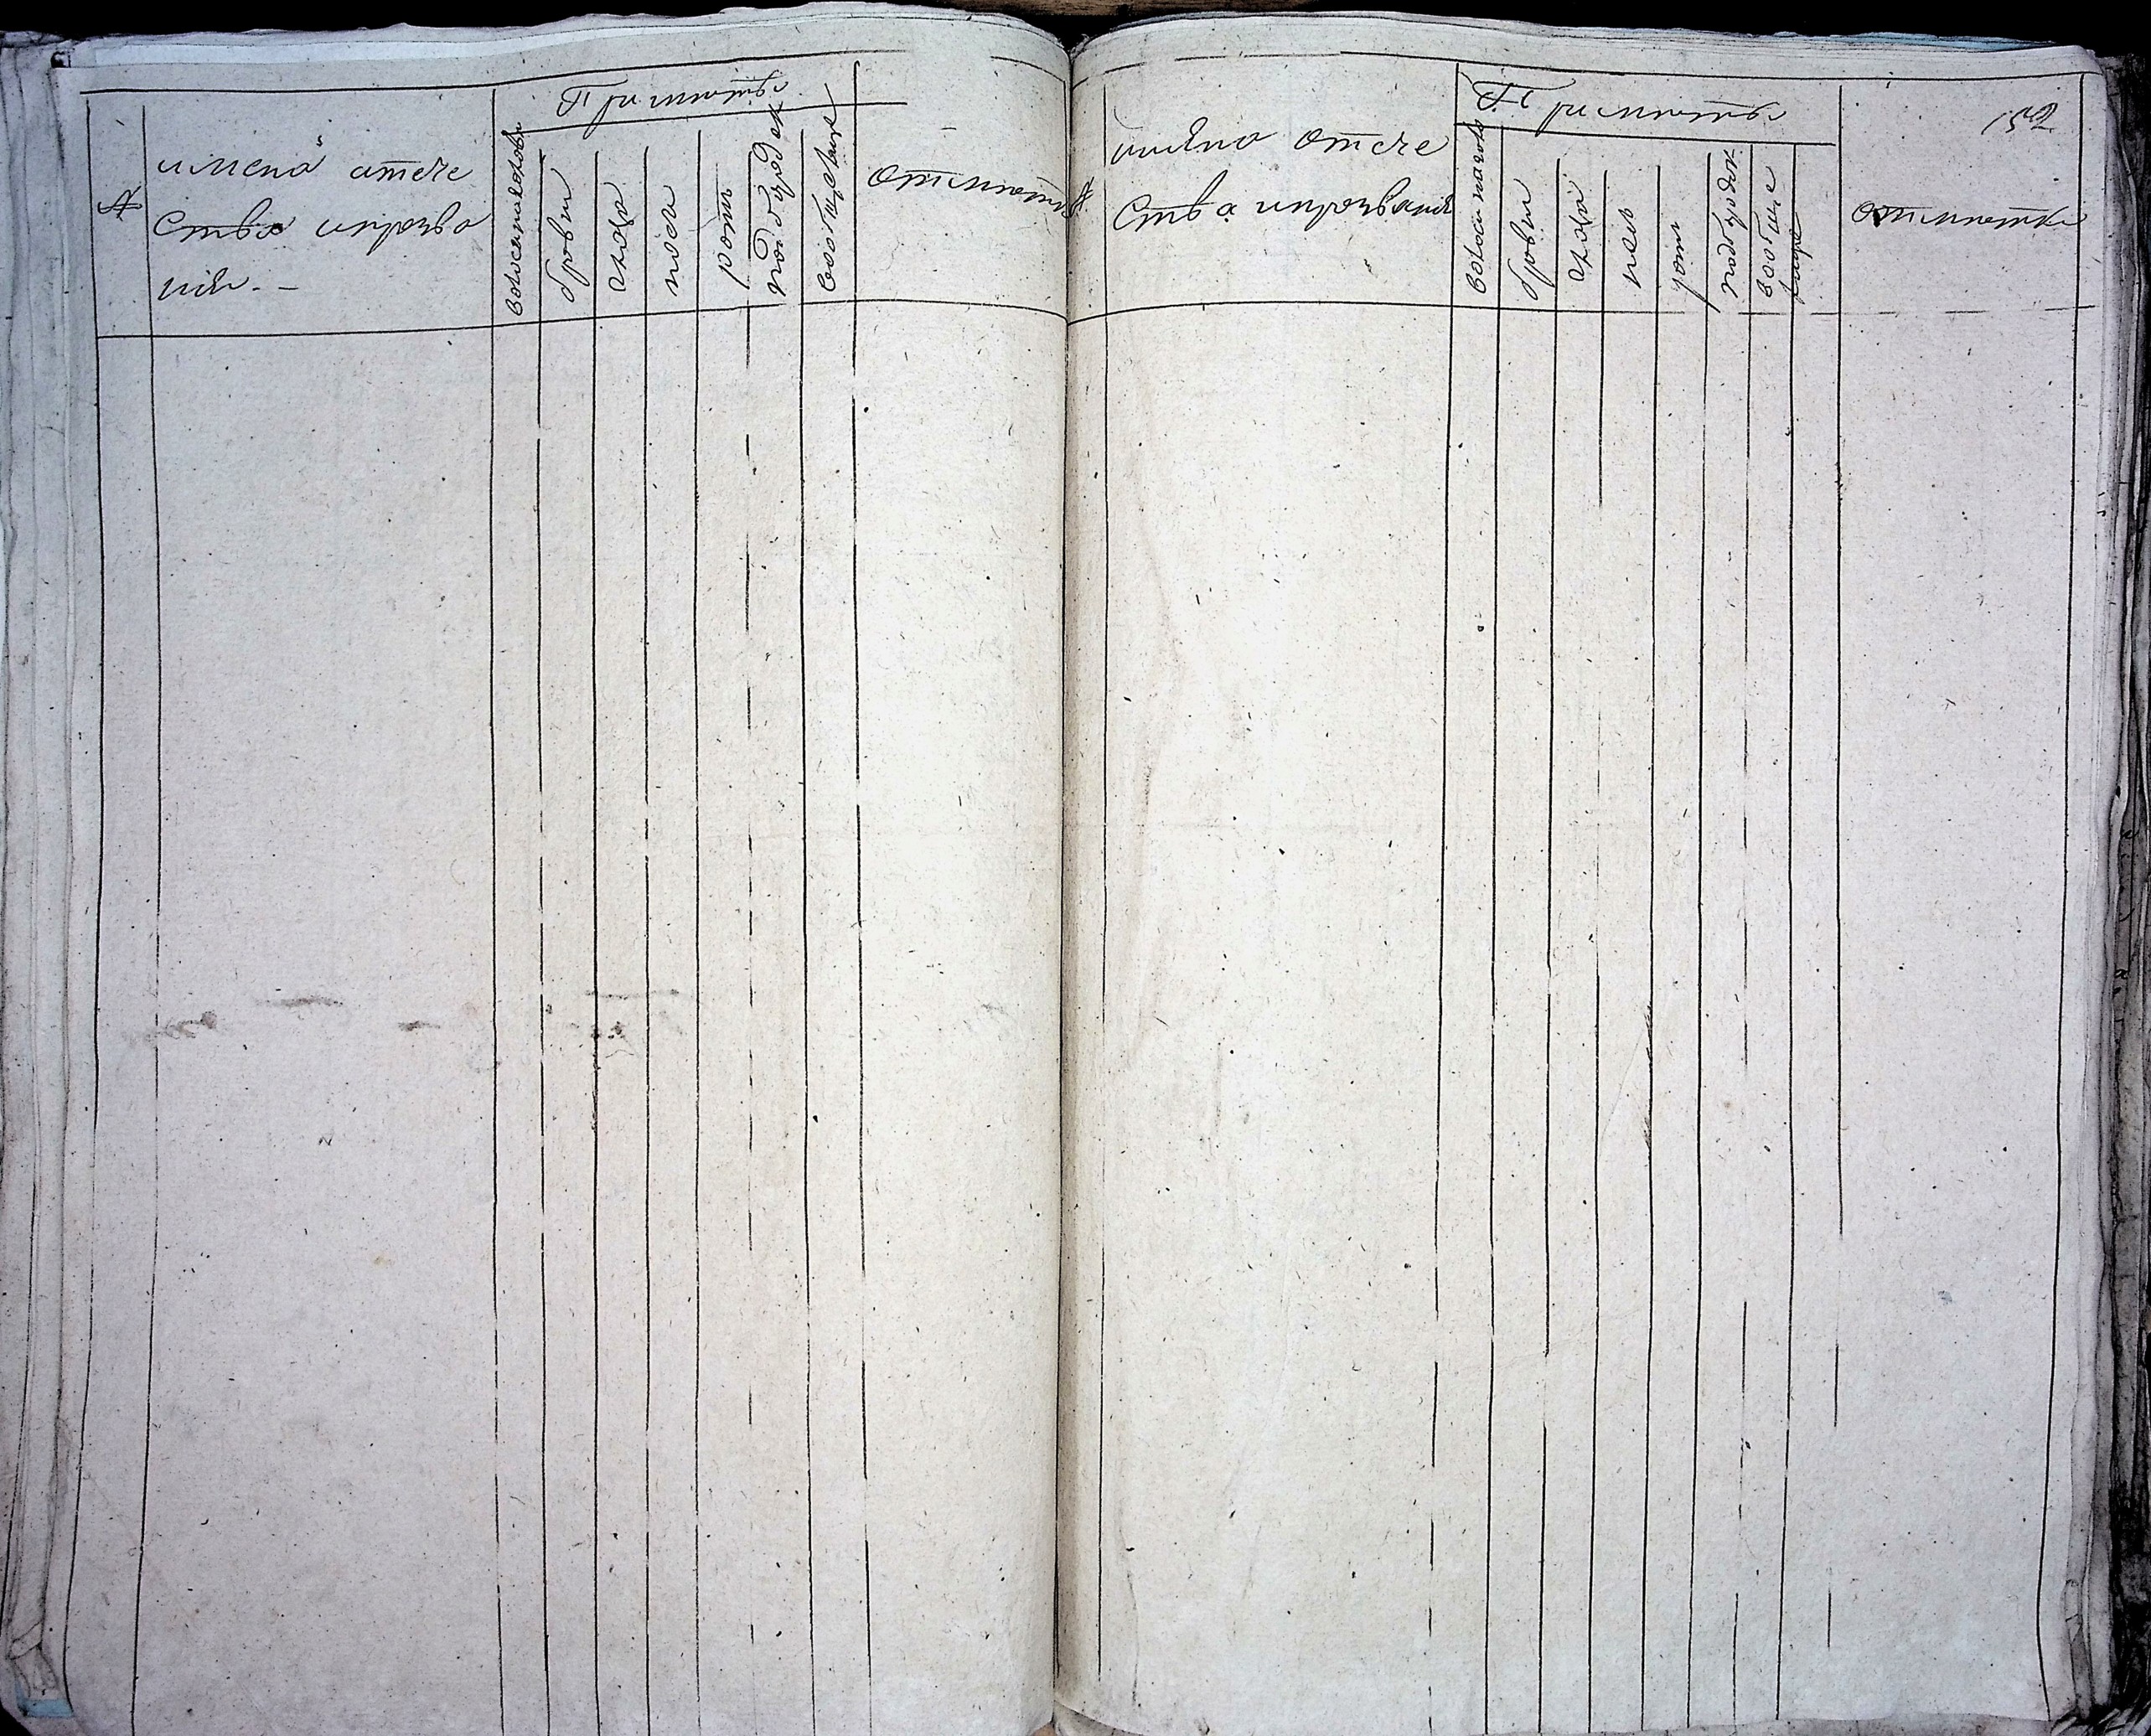 №
имена отече
ства ипрозва
нiя. –
Приметы
волоса наголове
брови
глаза
носъ
ротъ
подбородок
вообще лице
отметки
№
имена отече
ства ипрозвания
Приметы
волоси наголо
брови
глаза
носъ
ротъ
подбородок
вообще
лице
отметки
152